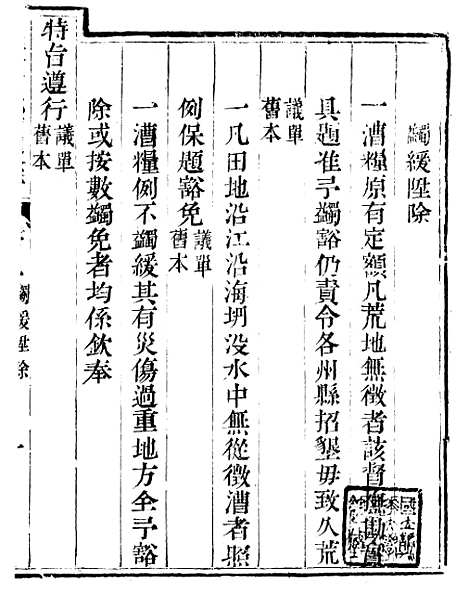 蠲緩陞除
一漕糧原有定額凡荒地無徵者該督撫勘實
具題准予蠲豁仍責令各州縣招墾毋致久荒
議單
舊本
一凡田地沿江沿海坍没水中無從徵漕者照
例保題豁免議單舊本
一漕糧例不蠲緩其有災傷過重地方全予豁
除或按數蠲免者均係欽奉
特旨遵行議單舊本
蠲緩陞除 一